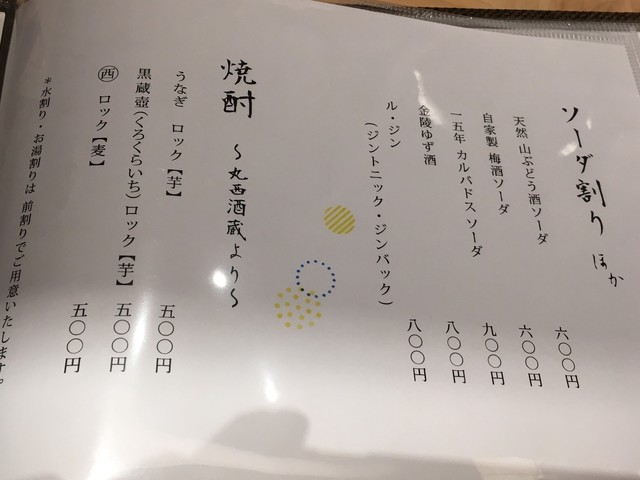 ソーダ割り ほか
天然 山ぶどう酒ソーダ 六〇〇円
自家製 梅酒ソーダ 六〇〇円
一五年 カルバドス ソーダ 九〇〇円
金陵ゆず酒 八〇〇円
ル・ジン
(ジントニック・ジンバック) 八〇〇円
焼酎 〜丸西酒蔵より〜
うなぎ ロック【芋】 五〇〇円
黒蔵壺(くろくらいち)ロック【芋】 五〇〇円
西 ロック【麦】 五〇〇円
＊水割り・お湯割りは 前割りでご用意いたします。